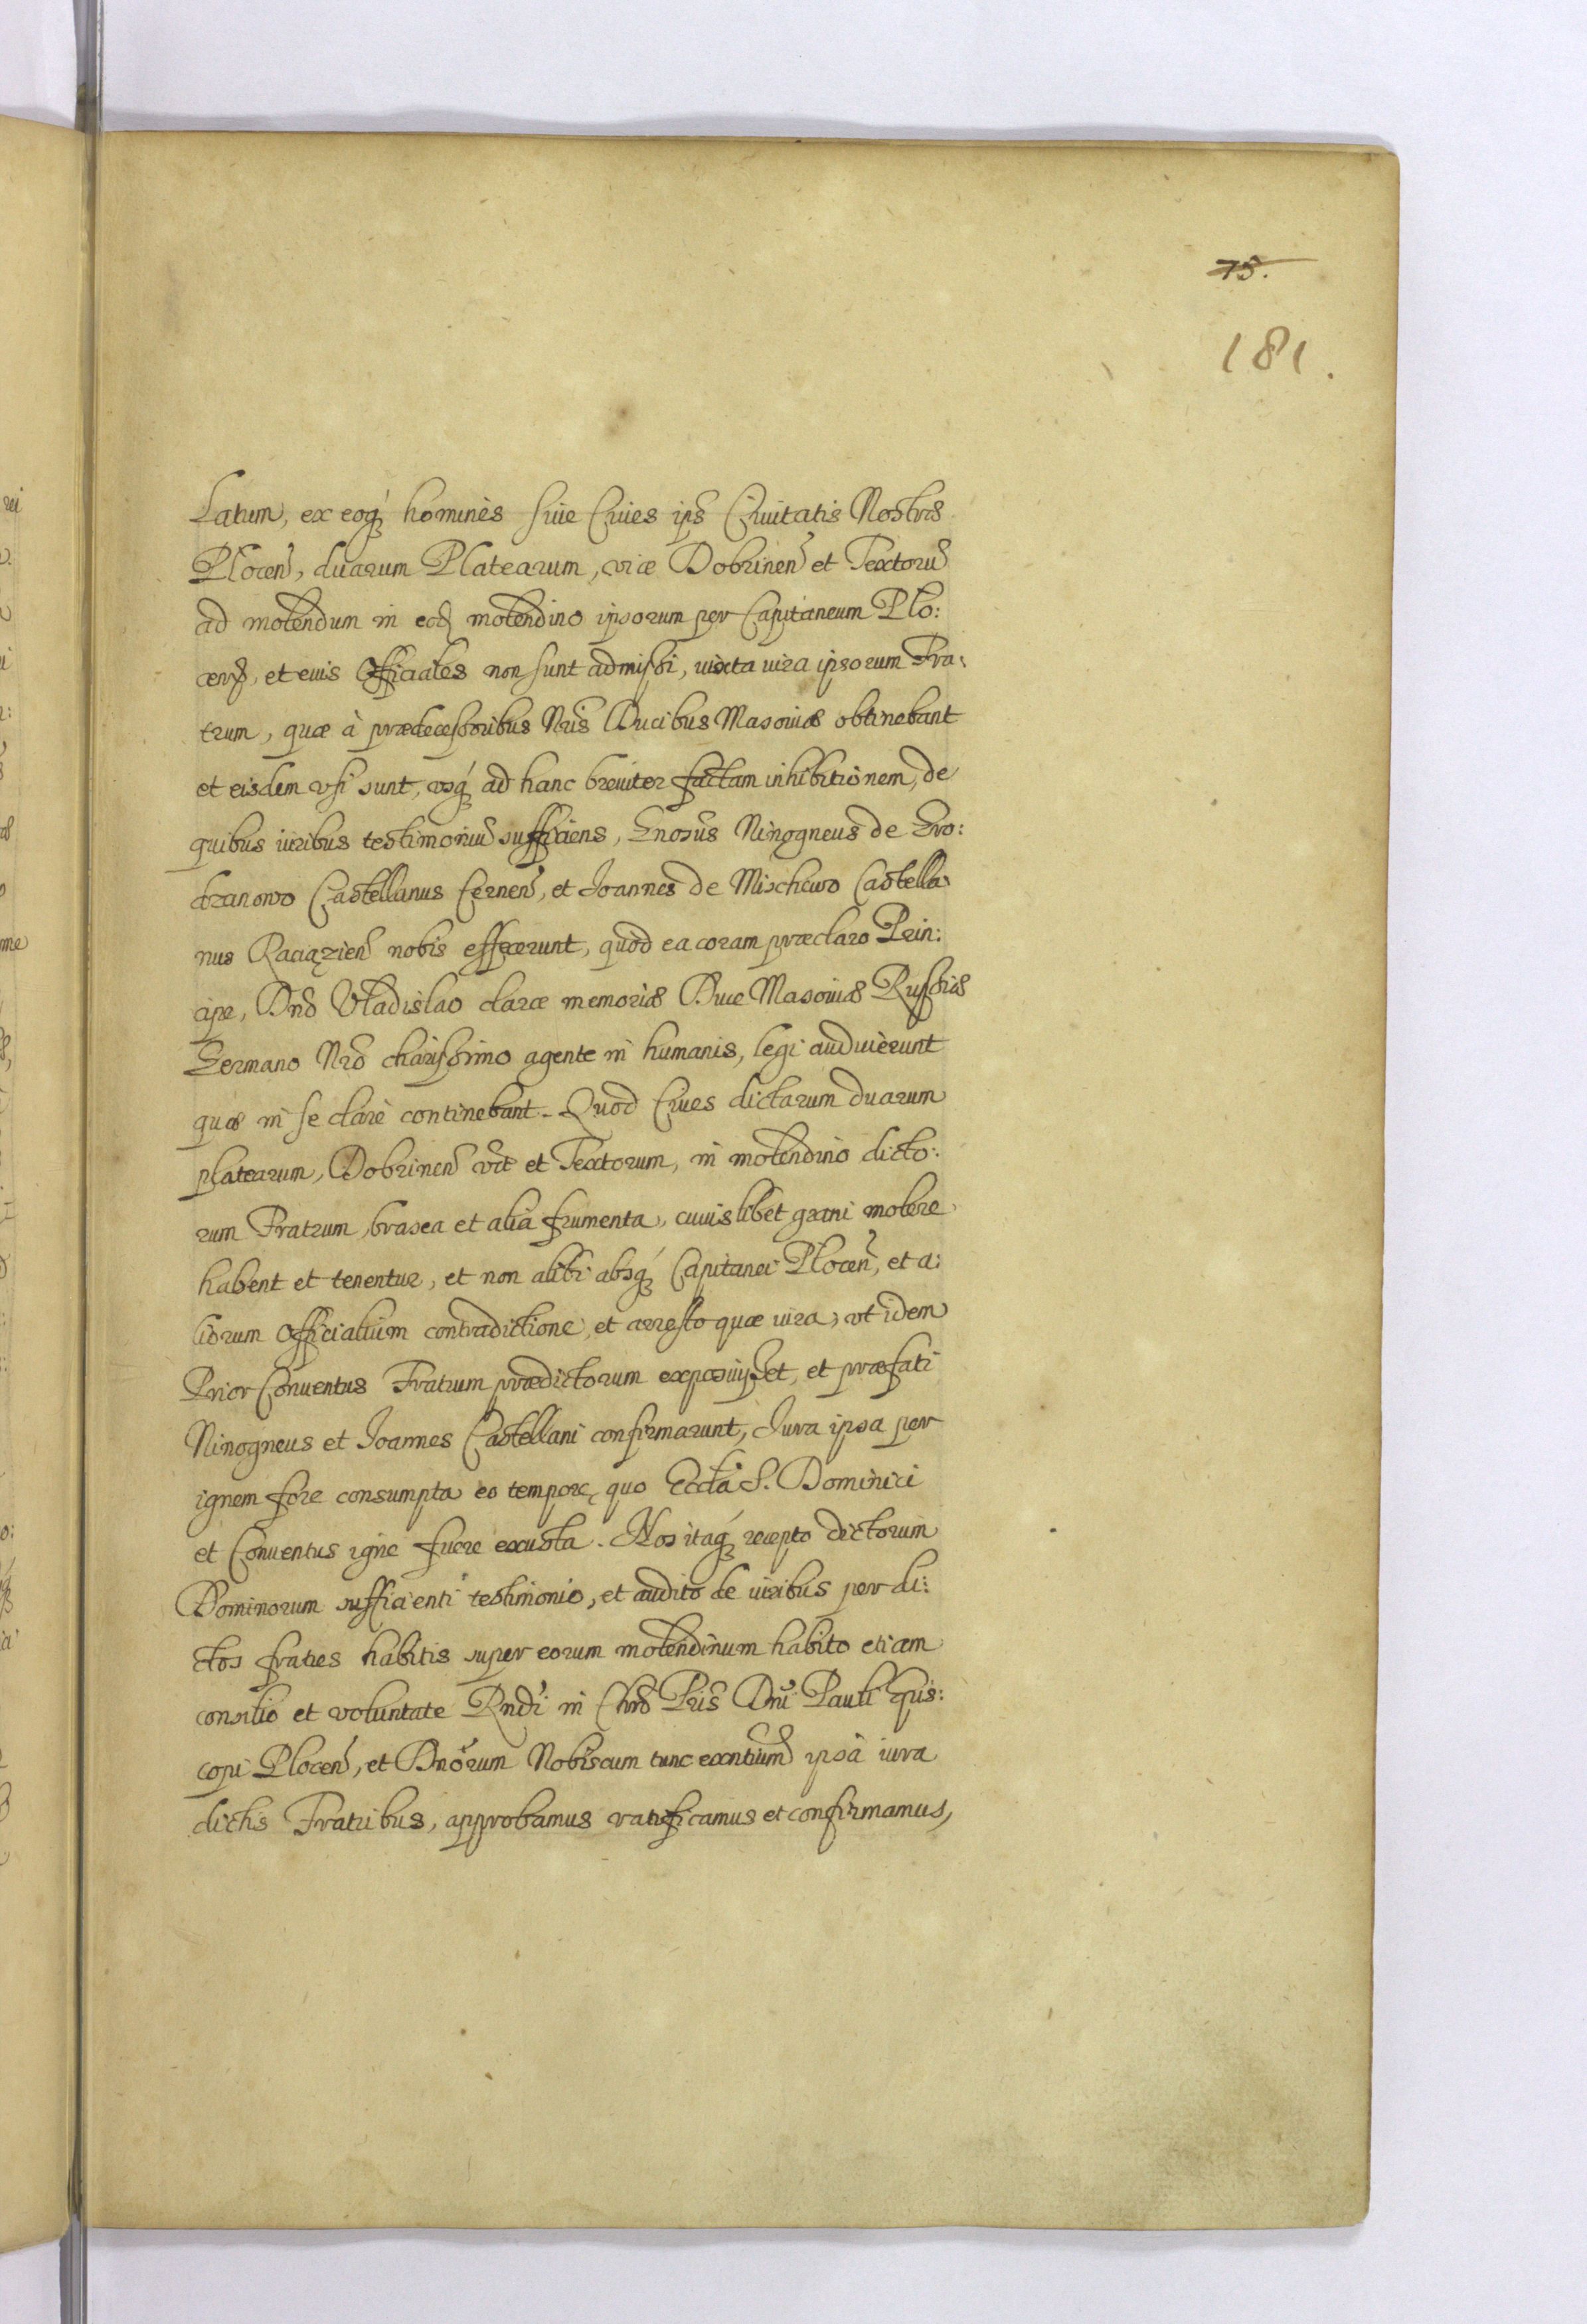 75.
181.
Latum, ex eoq́ꝫ hominès siue Ciues ips Ciuitatis Nostræ
Plocen̄, duarum Platearum, viæ Dobrinen̄ et Textorū
ad molendum in eod molendino ipsorum per Capitaneum Plo:
cen̄, et euis Officiales non sunt admissi, iuxta iura ipsorum Fra:
trum, quæ à prædecessoribus Nr̄is Ducibus Masouiæ obtinebant
et eisdem vsi sunt, vsq́ꝫ ad hanc breuiter factam inhibitionem, de
quibus iuribus testimoniū sufficiens, Gnosūs Ninogneus de Gro:
dzanowo Castellanus Cernen̄, et Joannes de Mischewo Castella:
nus Raciązien̄ nobis effecerunt, quòd ea coram præclaro Prin:
cipe, Dn̄o Vladislao claræ memoriæ Duce Masouiæ Russiæ
Germano Nr̄o charissimo agente in humanis, legi audiuèrunt
quæ in se clarè continebant. Quod Ciues dictarum duarum
platearum, Dobrinen̄ vc̄t et Textorum, in molendino dicto:
rum Fratrum, brasea et alia frumenta, cuiuslibet grani molere
habent et tenentur, et non alibi absq́ꝫ Capitanei Plocen̄, et a:
liorum Officialium contradictione, et arresto quæ iura, vt idem
Prior Conuentus Fratrum prædictorum exposuisset, et præfati
Ninogneus et Joannes Castellani confirmarunt, Jura ipsa per
ignem fore consumpta eo tempore, quo Eccl̄ia S. Dominici
et Conuentus igne fuere exusta. Nos itaq́ꝫ recepto dictorum
Dominorum sufficienti testimonio, et audito de iuribus per di:
ctos fratres habitis super eorum molendinum habito etiam
consilio et voluntate Rn̄di in Chr̄o Pr̄is Dn̄i Pauli Epis:
copi Plocen̄, et Dn̄orum Nobiscum tunc exn̄tium ipsa iura
dictis Fratribus, approbamus ratificamus et confirmamus,